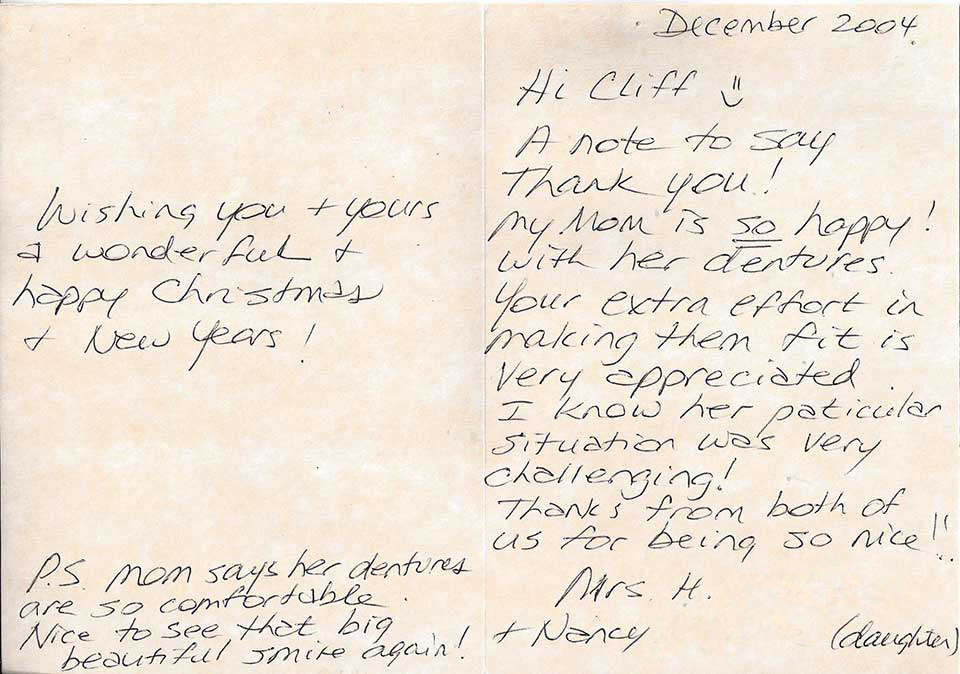 Wishing you + yours
a wonderful +
happy Christmas
+ New Years!
P.S. Mom says her dentures
are so comfortable.
Nice to see that big
beautiful smile again!
December 2004.
Hi Cliff
A note to say
Thank you!
My Mom is so happy!
with her dentures.
Your extra effort in
making them fit is
very appreciated.
I know her paticular
situation was very
challenging!
Thanks from both of
us for being so nice!!
Mrs. H.
+ Nancy (daughter)